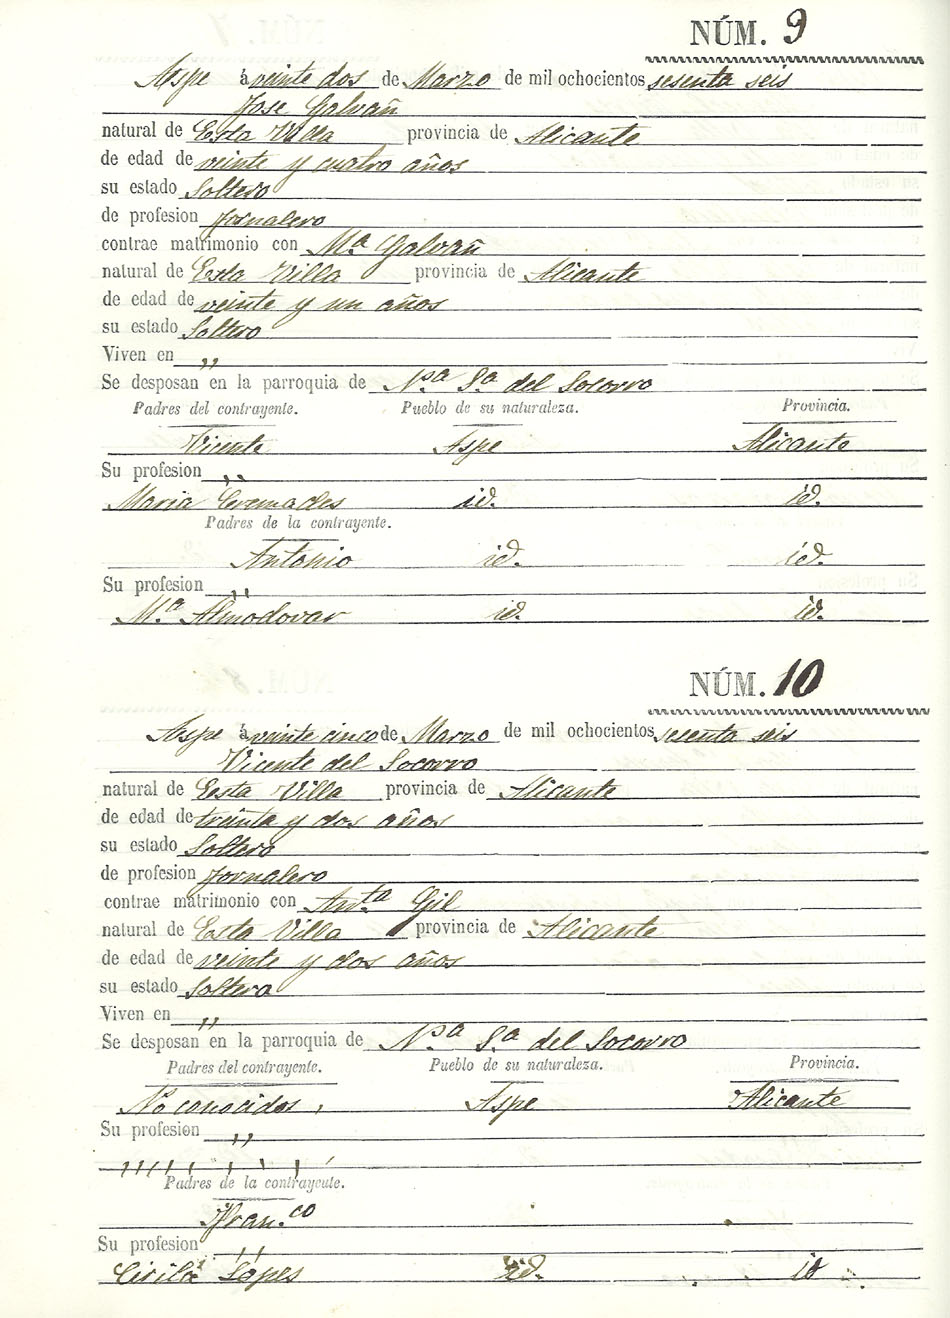 NÚM. 9
Aspe á veinte dos de Marzo de mil ochocientos sesenta seis
Jose Galvañ
natural de Esta Villa provincia de Alicante
de edad de veinte y cuatro años
su estado Soltero
de profesion Jornalero
contrae matrimonio con Mª Galvañ
natural de Esta Villa provincia de Alicante
de edad de veinte y un años
su estado Soltero
Viven en ,,
Se desposan en la parroquia de Nª Sª del Socorro
Padres del contrayente. Pueblo de su naturaleza. Provincia.
Vicente Aspe Alicante
Su profesion ,,
Maria Cremades id. id.
Padres de la contrayente.
Antonio id. id.
Su profesion ,,
Mª Almodovar id. id.
NÚM. 10
Aspe á veinte cinco de Marzo de mil ochocientos sesenta seis
Vicente del Socorro
natural de Esta Villa provincia de Alicante
de edad de treinta y dos años
su estado Soltero
de profesion Jornalero
contrae matrimonio con Anta Gil
natural de Esta Villa provincia de Alicante
de edad de veinte y dos años
su estado Soltera
Viven en ,,
Se desposan en la parroquia de Nª Sª del Socorro
Padres del contrayente. Pueblo de su naturaleza. Provincia.
No conocidos, Aspe Alicante
Su profesion ,,
Padres de la contrayente.
Fran.co
Su profesion ,,
Cirila Lópes id. id